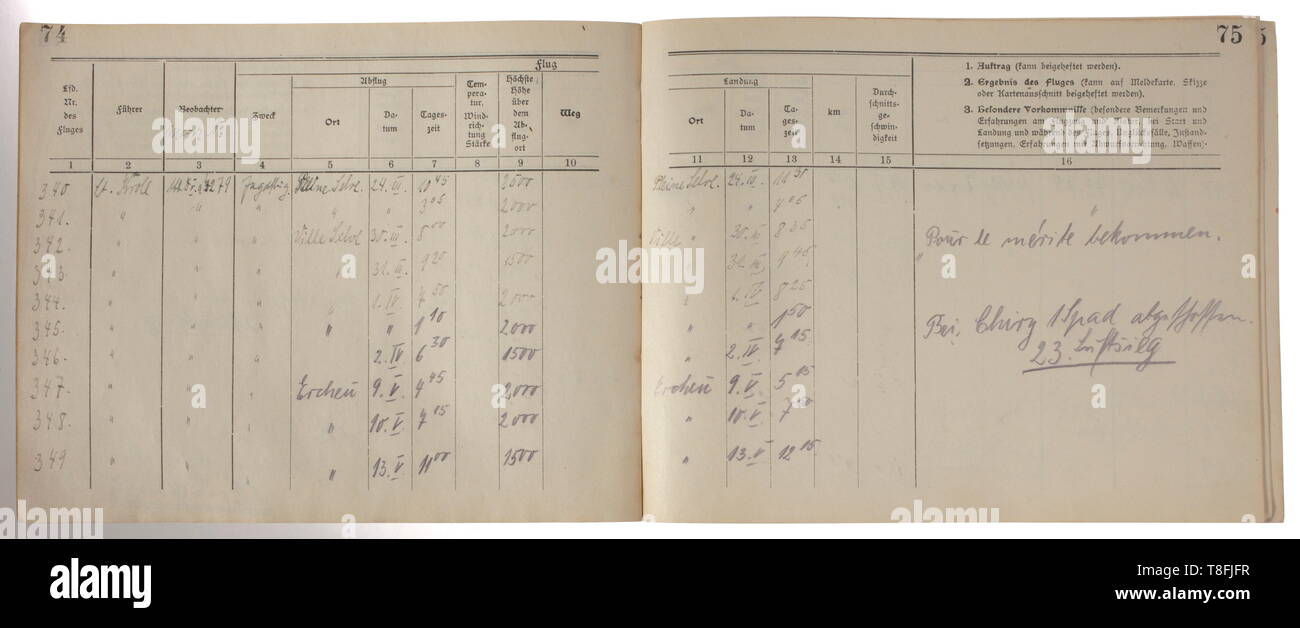 74
Flug
Abflug
Lfd. Nr. des Fluges
Führer
Beobachter
Zweck
Ort
Da-tum
Tages-zeit
Tem-pera-tur. Wind-rich-tung Stärke
Höchste Höhe über dem Ab-flug-ort
Weg
1 2 3 4 5 6 7 8 9 10
340 Lt. Kroll Jagdflug. 24. III. 10 45 2500
341. " " " " " 3 05 2000
342. " " " Ville Selve 30. III. 8 00 2000
343 " " " " 31. III. 9 20 1500
344. " " " 1. IV. 7 50 2000
345. " " " " " 1 10 2000
346. " " " 2. IV 6 30 1500
347. " " Ercheu 9. V. 4 45 2000
348. " " " 10. V. 7 05 2000
349 " " " 13. V 11 00 1500
75
Landung
Ort
Da-tum
Ta-ges-zeit
km
Durch-schnitts-ge-schwin-digkeit
1. Auftrag (kann beigeheftet werden).
2. Ergebnis des Fluges (kann auf Meldekarte. Skizze
oder Kartenausschnitt beigeheftet werden).
3. Besondere Vorkommnisse (besondere Bemerkungen und
Erfahrungen am Flugzeug und Motor, bei Start und
Landung und während des Fluges. Unglücksfälle, Instand-
setzungen. Erfahrungen mit Abwurfvorrichtung. Waffen).
11 12 13 14 15 16
24. III. 11 30
" " 4 05
Ville " 30. III 8 35
Pour le mérite bekommen.
31. III 9 45
" 1. IV. 8 25
" " 1 50
Bei Chiry 1 Spad abgeschossen.
" 2. IV. 7 15
23. Luftsieg
Ercheu 9. V. 5 15
" 10. V.
" 13. V 12 15
alamy
alamy stock photo
Image ID: T8FJFR
www.alamy.com